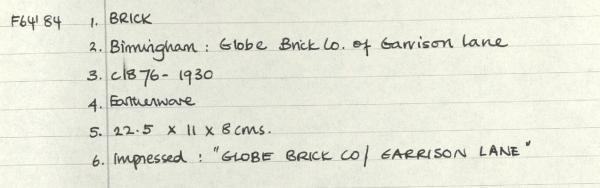 F64'84 1. BRICK
2. Birmingham : Globe Brick Co. of Garrison Lane
3. c1876 - 1930
4. Earthenware
5. 22.5 x 11 x 8 cms.
6. Impressed : "GLOBE BRICK CO / GARRISON LANE"